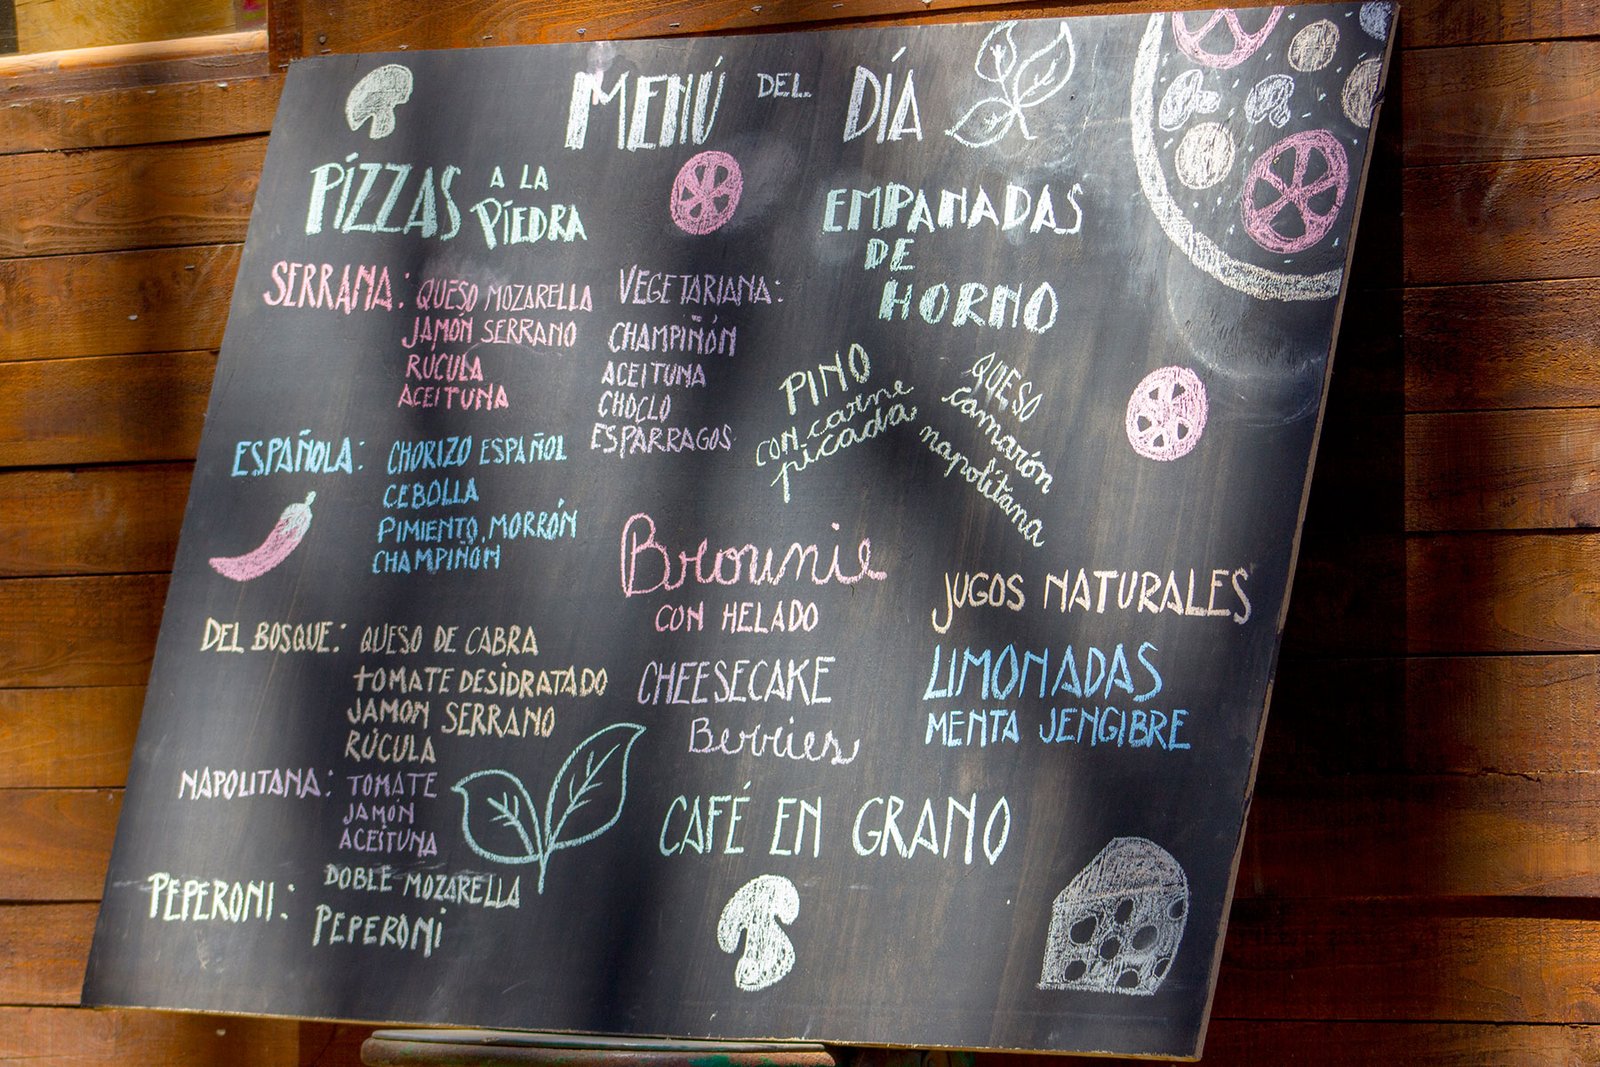 MENÚ DEL DÍA
PIZZAS A LA
PIEDRA
SERRANA: QUESO MOZARELLA
JAMÓN SERRANO
RÚCULA
ACEITUNA
VEGETARIANA:
CHAMPIÑÓN
ACEITUNA
CHOCLO
ESPÁRRAGOS
ESPAÑOLA: CHORIZO ESPAÑOL
CEBOLLA
PIMIENTO, MORRÓN
CHAMPIÑON
DEL BOSQUE: QUESO DE CABRA
TOMATE DESIDRATADO
JAMON SERRANO
RÚCULA
NAPOLITANA: TOMATE
JAMÓN
ACEITUNA
PEPERONI: DOBLE MOZARELLA
PEPERONI
EMPANADAS
DE
HORNO
PINO
con carne
picada
QUESO
camarón
napolitana
Brownie
CON HELADO
CHEESECAKE
Berries
JUGOS NATURALES
LIMONADAS
MENTA JENGIBRE
CAFÉ EN GRANO